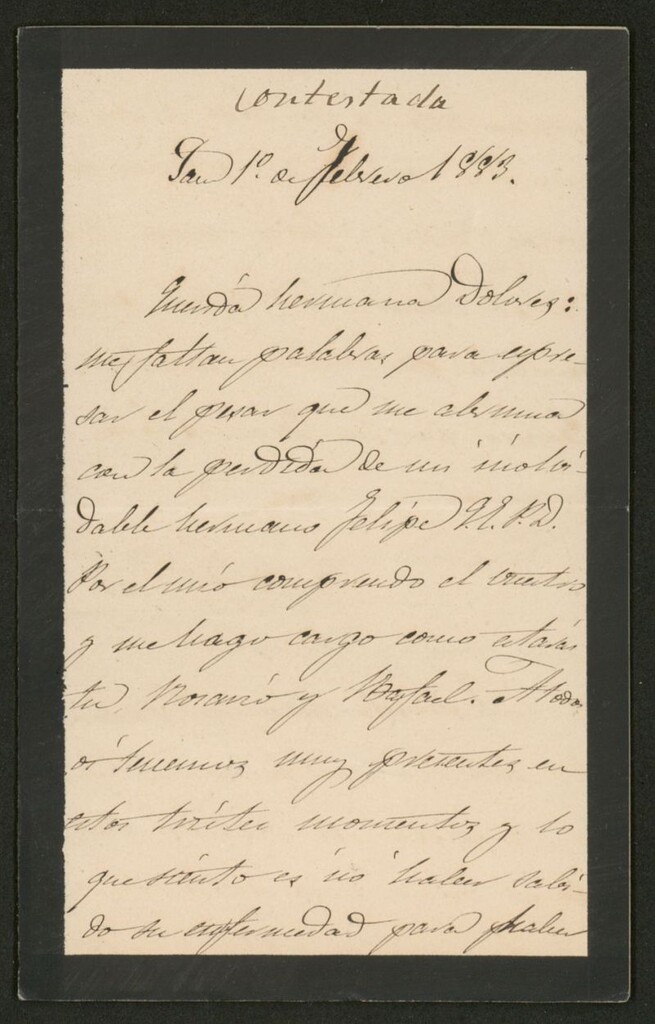 Contestada
Pau 1º de Febrero 1883.
Querida hermana Dolores:
me faltan palabras para espre-
sar el pesar que me abruma
con la perdida de mi inolvi-
dable hermano Felipe q.e.p.d.
Por el mio comprendo el vuestro
y me hago cargo como estarás
tu, Rosario y Rafael. A todos
os tenemos muy presentes en
estos tristes momentos y lo
que siento es no haber sabi-
do su enfermedad para haber